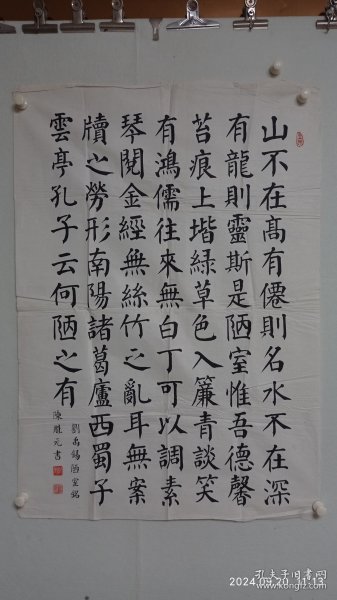 山不在髙有僊則名水不在深
有龍則靈斯是陋室惟吾德馨
苔痕上堦緑草色入簾青談笑
有鴻儒往來無白丁可以調素
琴閱金經無絲竹之亂耳無案
牘之勞形南陽諸葛廬西蜀子
雲亭孔子云何陋之有
劉禹錫陋室銘
陳胜元書
2024.09.20 11:13
孔夫子旧书网